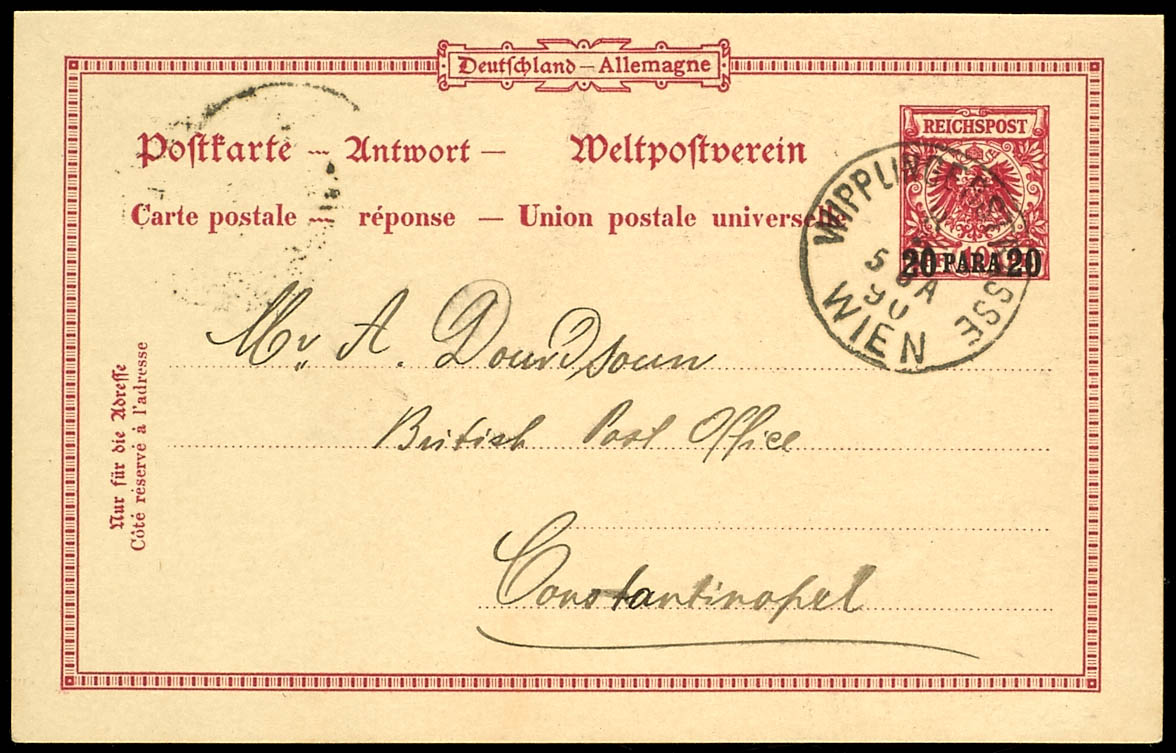 Deutschland – Allemagne
Postkarte – Antwort – Weltpostverein
Carte postale – réponse – Union postale universelle
REICHSPOST
20 PARA 20
WIPPLINGERSTRASSE
5
90
WIEN
Mr. A.
British Post Office
Constantinopel
Nur für die Adresse
Côté réservé à l'adresse